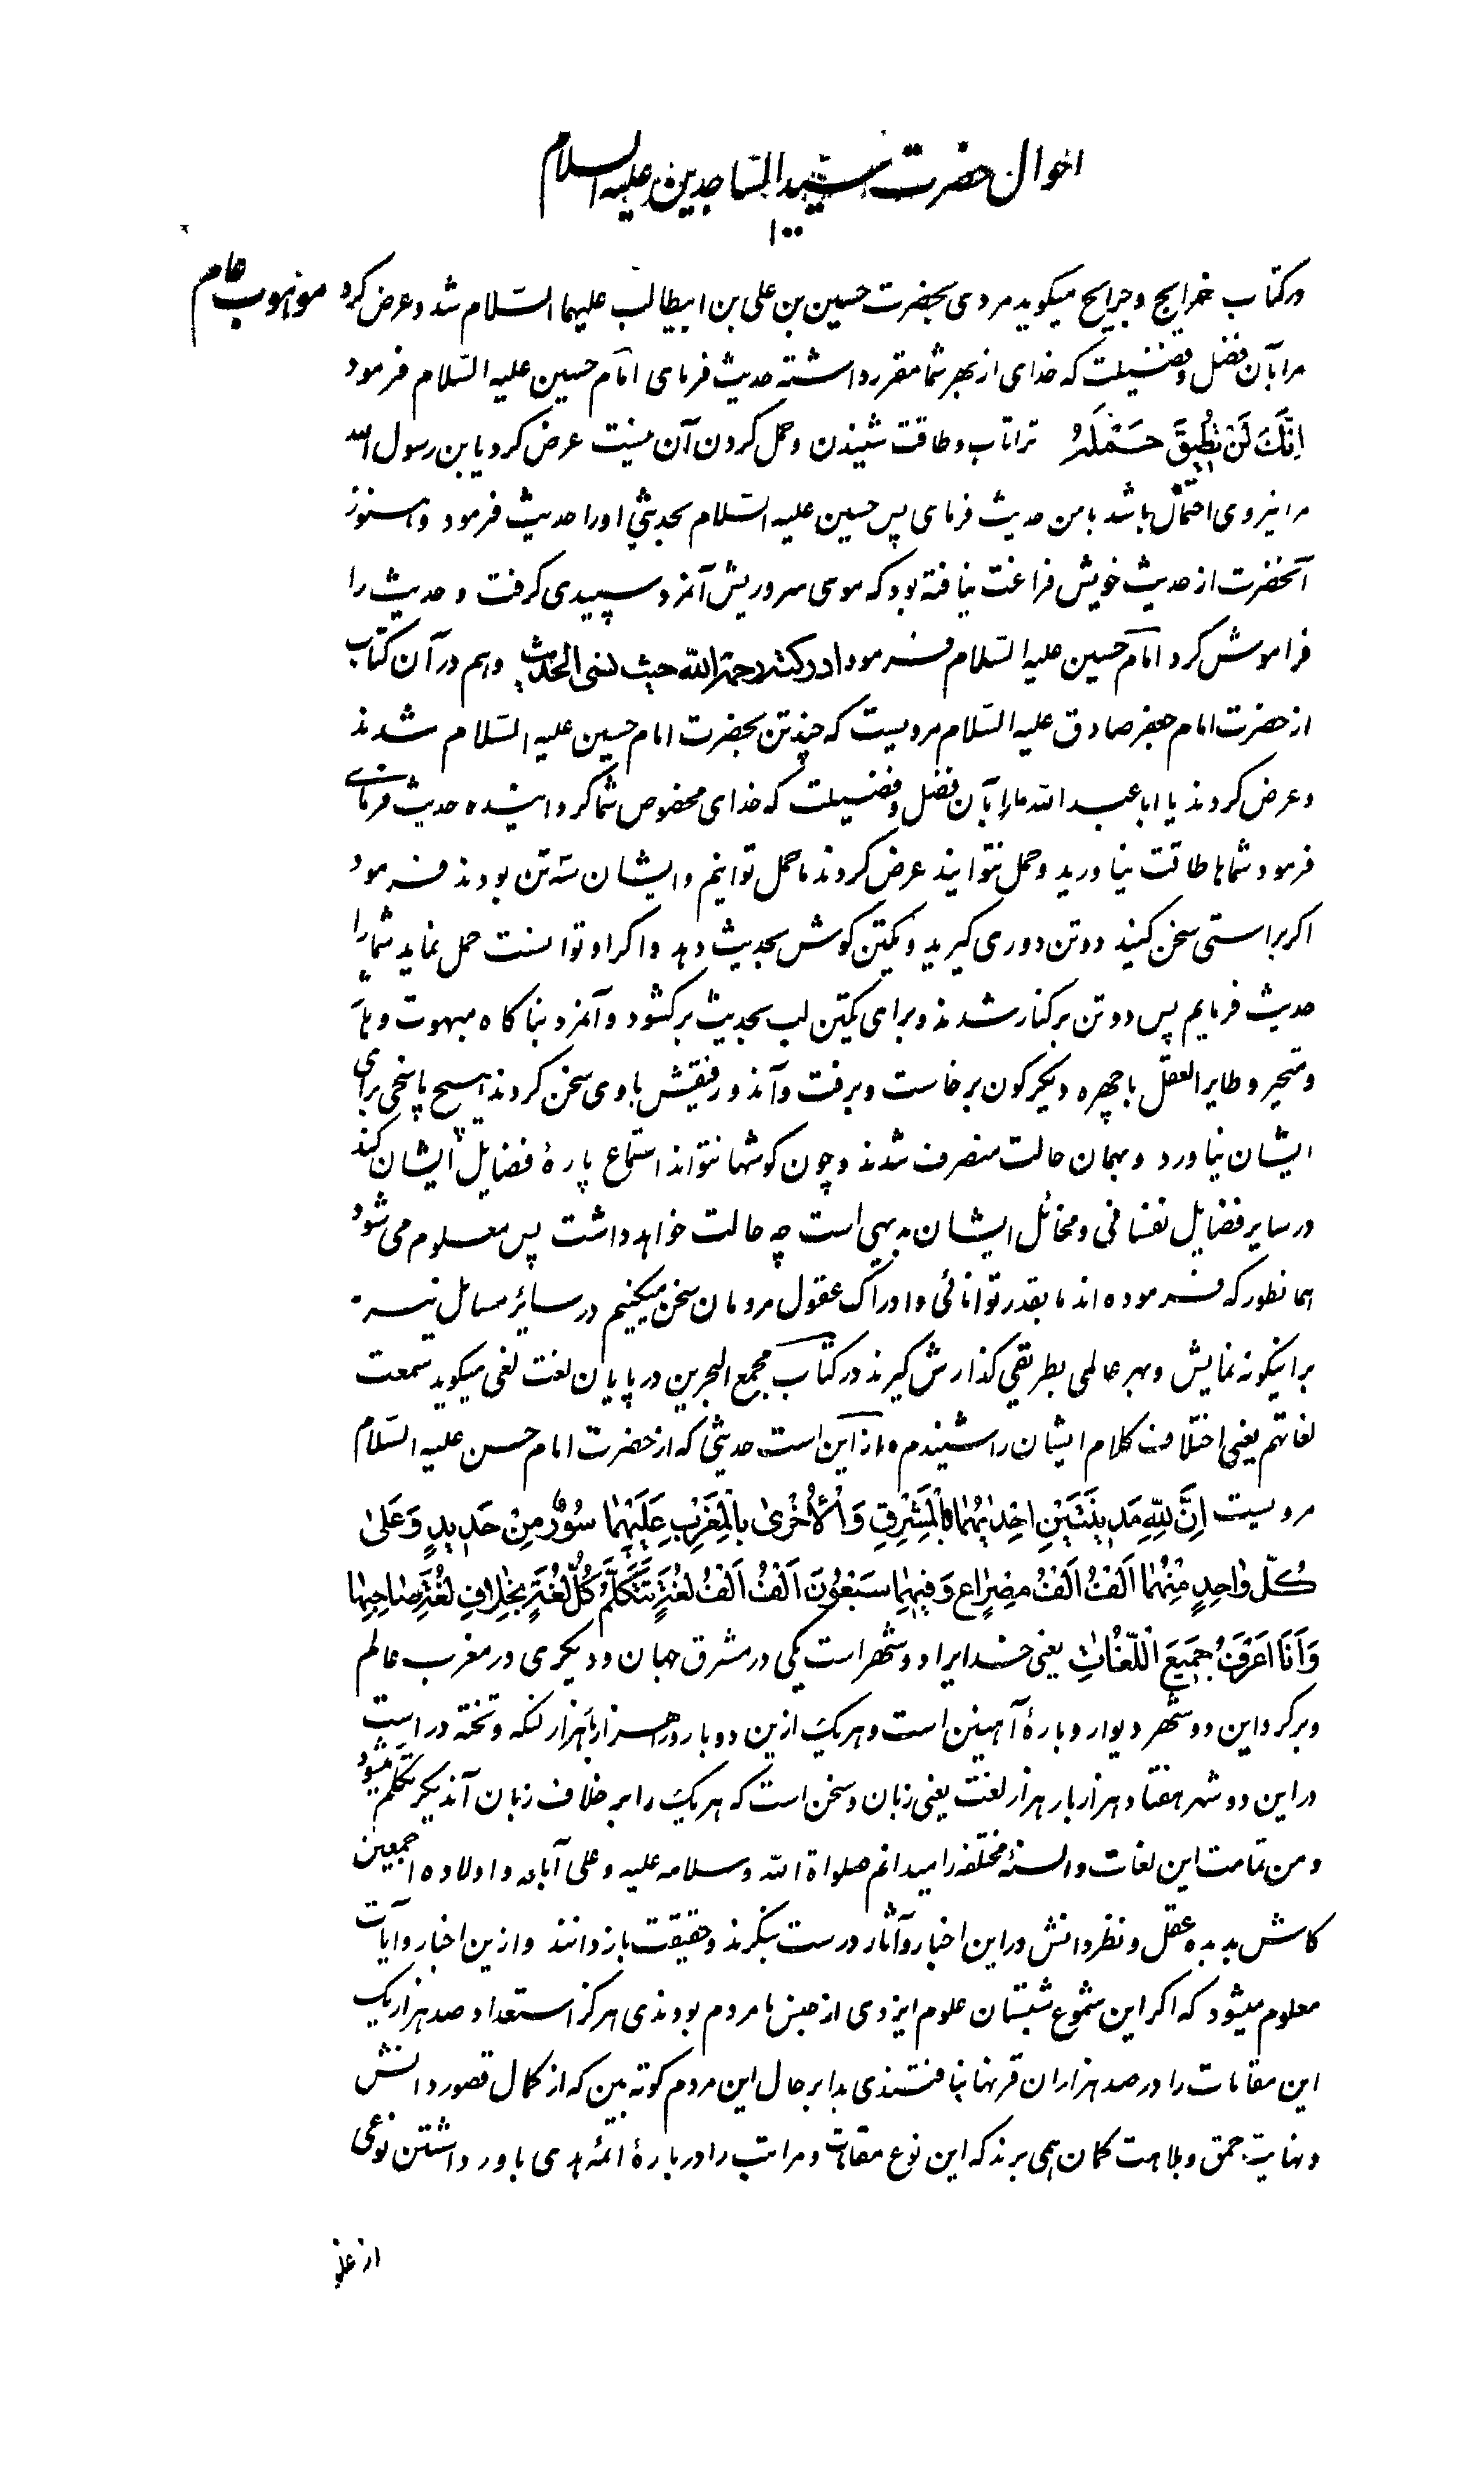 احوال حضرت سید الساجدین علیه السلام
۱۰۰
در کتاب خرایج و جرایح میکوید مردی بحضرت حسین بن علی بن ابیطالب علیهما السّلام شد و عرض کرد
مرا بآن فضل و فضیلت که خدای از بهر شما مقرر داشته حدیث فرمای امام حسین علیه السّلام فرمود
اِنَّكَ لَنْ تُطِیقَ حَمْلَهُ ترا تاب و طاقت شنیدن و حمل کردن آن نیست عرض کرد یابن رسول الله
مرا نیروی احتمال باشد با من حدیث فرمای پس حسین علیه السّلام بحدیثی اورا حدیث فرمود و هنوز
آنحضرت از حدیث خویش فراغت نیافته بود که موی سر و ریش آنمرد سپیدی کرفت و حدیث را
فراموش کرد امام حسین علیه السّلام فرمود ادرکته رحمة الله حیث نسی الحدیث و هم در آن کتاب
از حضرت امام جعفر صادق علیه السّلام مرویست که چند تن بحضرت امام حسین علیه السّلام شدند
و عرض کردند یا ابا عبد الله ما را بآن فضل و فضیلت که خدای مخصوص شما کردانیده حدیث فرمای
فرمود شماها طاقت نیاورید و حمل نتوانید عرض کردند ما حمل توانیم و ایشان سه تن بودند فرمود
اکر براستی سخن کنید دو تن دوری کیرید و یکتن کوش بحدیث دهد و اکر او توانست حمل نماید شما را
حدیث فرمایم پس دو تن بر کنار شدند و برای یکتن لب بحدیث برکشود و آنمرد بناکاه مبهوت و
و متحیر و طایر العقل با چهره دیکرکون برخاست و برفت و آندو رفیقش با وی سخن کردند هیچ پاسخی برای
ایشان نیاورد و بهمان حالت منصرف شدند و چون کوشها نتواند استماع پارهٔ فضایل ایشان کند
در سایر فضایل نفسانی و مخائل ایشان بدیهی است چه حالت خواهد داشت پس معلوم می شود
همانطور که فرموده اند ما بقدر توانائی و ادراک عقول مردمان سخن میکنیم در سایر مسائل نیز
براینکونه نمایش و بهر عالمی بطریقی کذارش کیرند در کتاب مجمع البحرین در پایان لغت لغی میکوید سمعت
لغاتهم یعنی اختلاف کلام ایشان را شنیدم و از این است حدیثی که از حضرت امام حسن علیه السّلام
مرویست اِنَّ لِلّهِ مَدِینَتَیْنِ اِحْدٰیهُمٰا بِالْمَشْرِقِ وَ الْاُخْرىٰ بِالْمَغْرِبِ عَلَیْهِمٰا سُورٌ مِنْ حَدِیدٍ وَ عَلىٰ
كُلِّ وٰاحِدٍ مِنْهُمٰا اَلْفُ اَلْفِ مِصْرٰاعٍ وَ فِیهِمٰا سَبْعُونَ اَلْفَ اَلْفِ لُغَةٍ تَتَكَلَّمُ كُلُّ لُغَةٍ بِخِلٰافِ لُغَةِ صٰاحِبِهٰا
وَ اَنَا اَعْرِفُ جَمِیعَ اللُّغٰاتِ یعنی خدایرا دو شهر است یکی در مشرق جهان و دیکری در مغرب عالم
و بر کرد این دو شهر دیوار و بارهٔ آهنین است و هر یک ازین دو باره را هزار بار هزار لنکه و تخته در است
در این دو شهر هفتاد هزار بار هزار لغت یعنی زبان و سخن است که هر یک را بر خلاف زبان آندیکر تکلم میشود
و من تمامت این لغات و السنهٔ مختلفه را میدانم صلواة الله و سلامه علیه و علی آبائه و اولاده اجمعین
کاش بدیده عقل و نظر دانش در این اخبار و آثار درست بنکرند و حقیقت باز دانند و ازین اخبار و آیات
معلوم میشود که اکر این شموع شبستان علوم ایزدی از جنس ما مردم بودندی هرکز استعداد صد هزار یک
این مقامات را در صد هزاران قرنها نیافتندی بدا بر حال این مردم کوته بین که از کمال قصور دانش
و نهایت حمق و بلاهت کمان همی برند که این نوع مقامات و مراتب را در بارهٔ ائمهٔ هدی باور داشتن نوعی